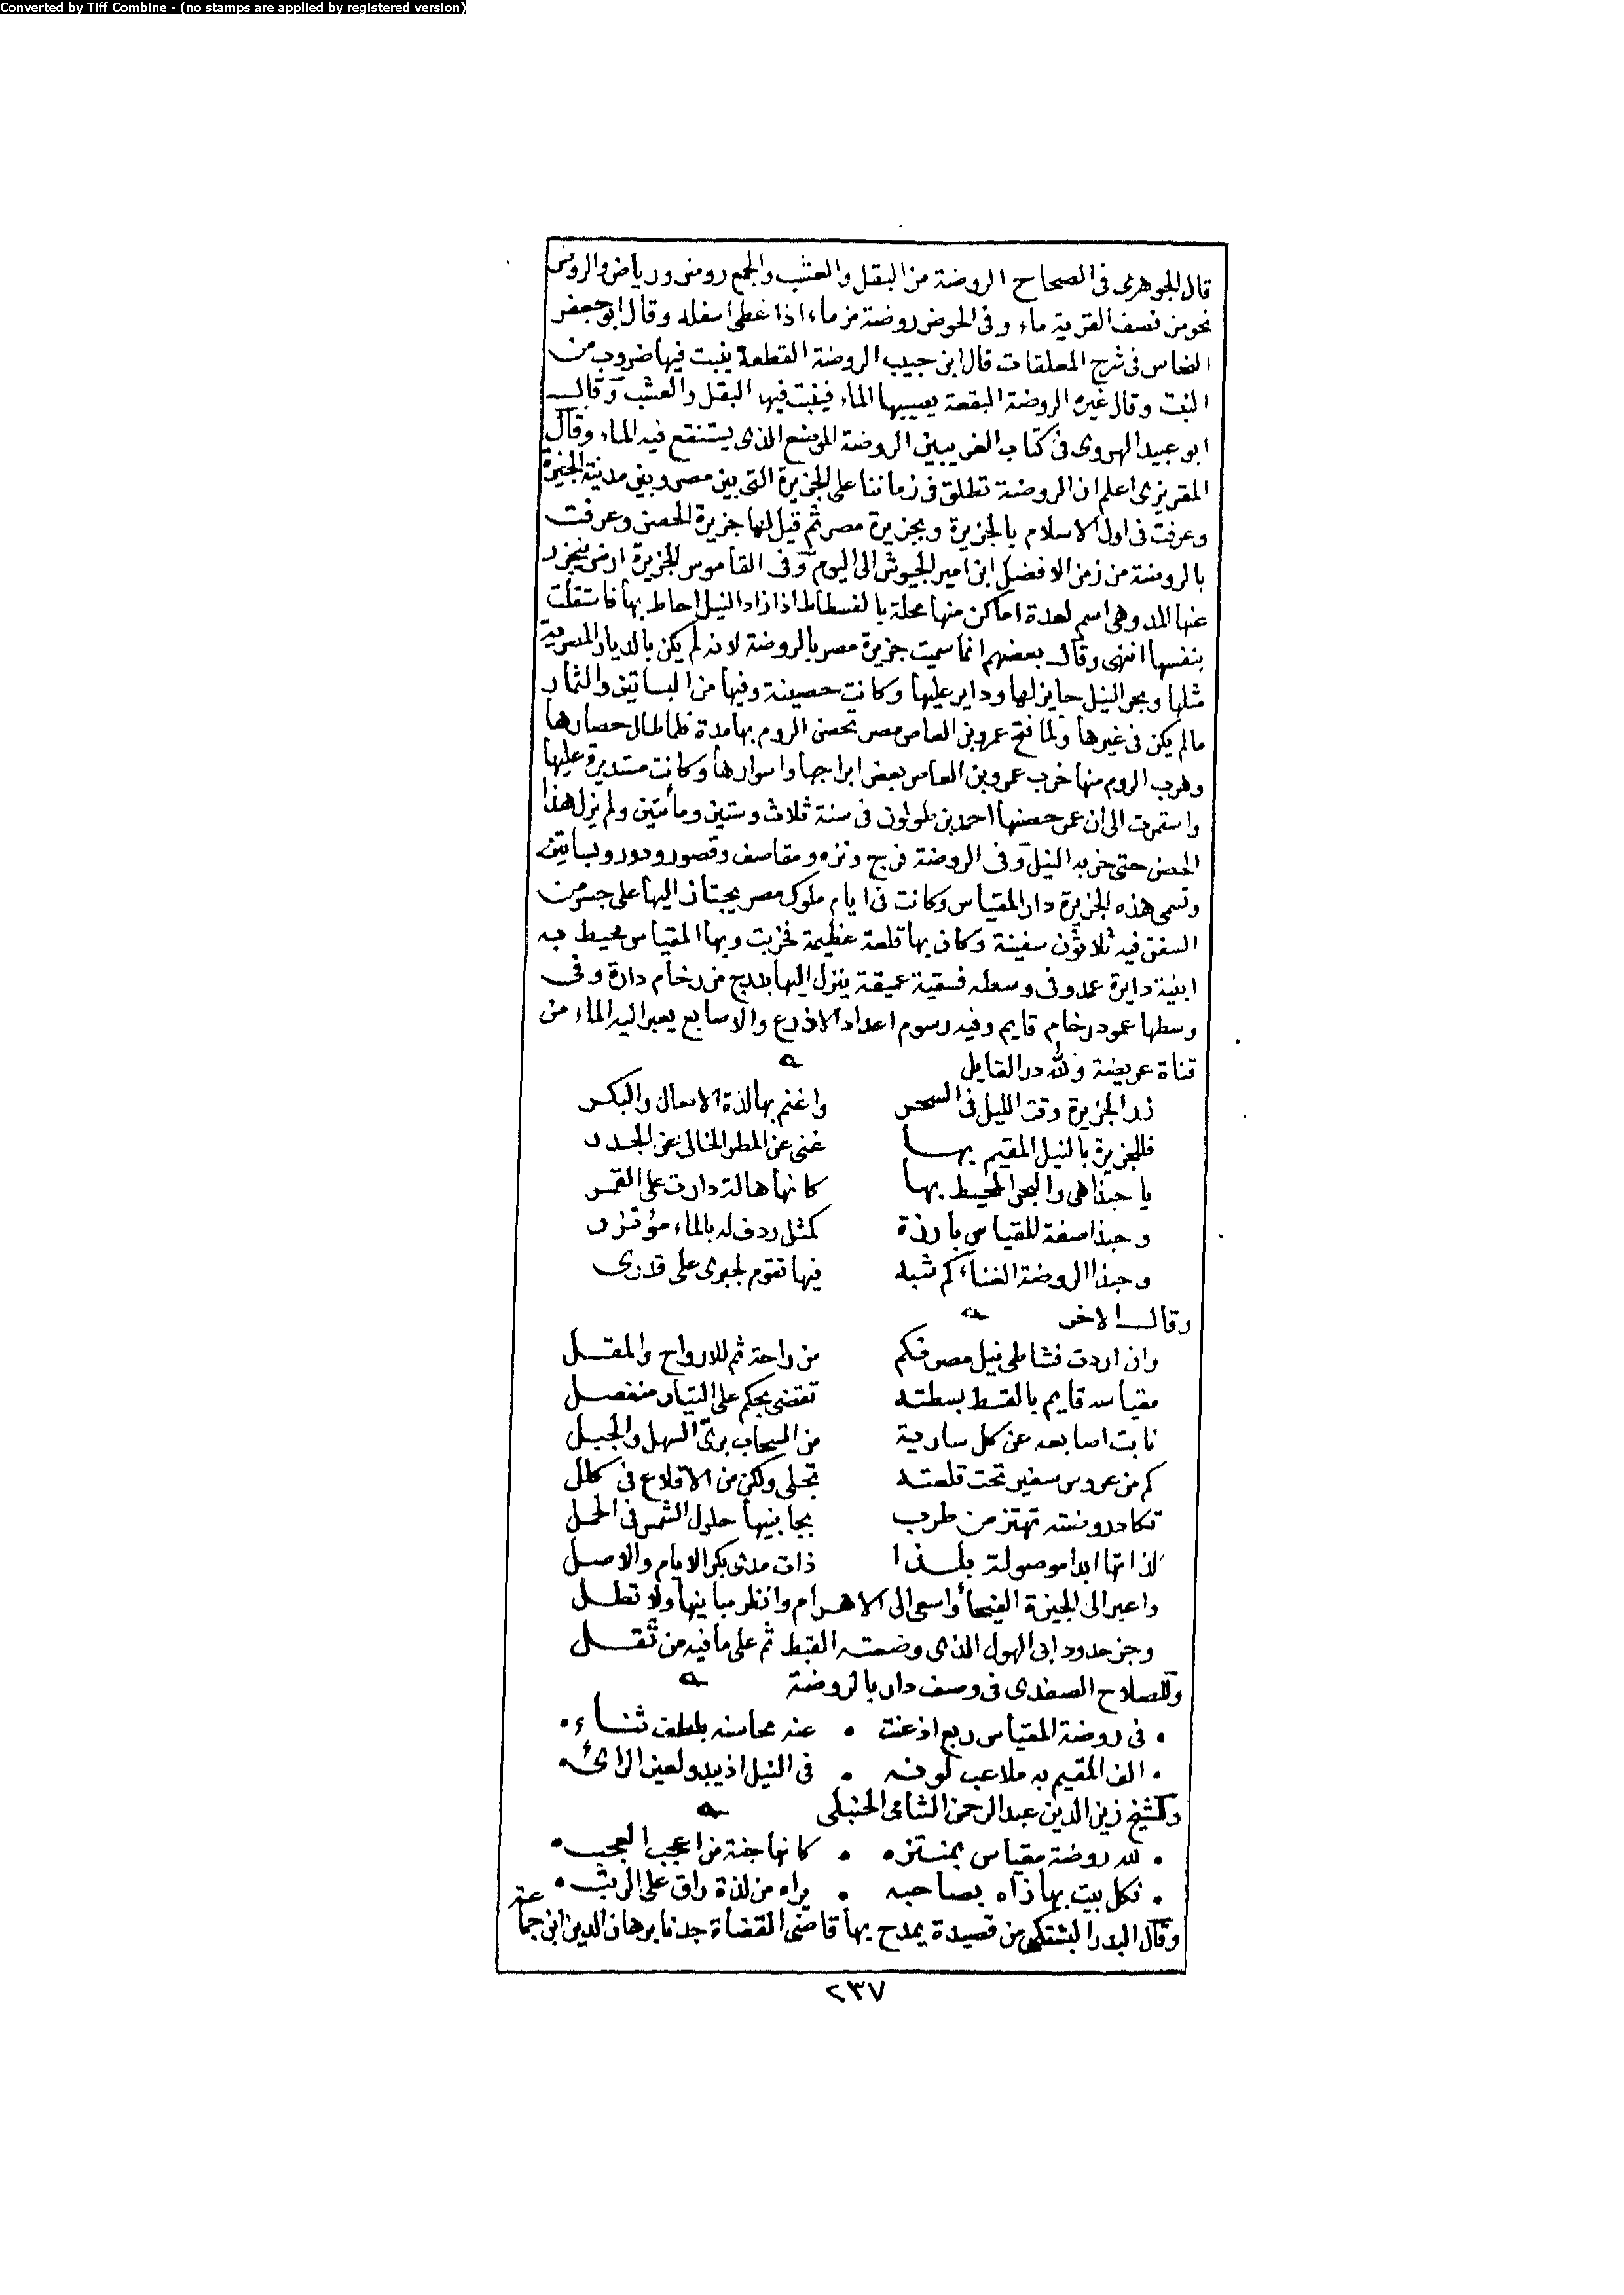 Converted by Tiff Combine - (no stamps are applied by registered version)
قال الجوهرى فى الصحاح الروضة من البقل والعشب والجمع روض ورياض والروض
نحو من نصف القربة ماء وفى الحوض روضة من ماء اذا غطى اسفله وقال ابو جعفر
النحاس فى شرح المعلقات قال ابن حبيب الروضة القطعة ينبت فيها ضروب من
النبت وقال غيره الروضة البقعة يصيبها الماء فينبت فيها البقل والعشب وقال
ابو عبيد الهروى فى كتاب الغريبين الروضة الموضع الذى يستنقع فيه الماء وقال
المقريزى اعلم ان الروضة تطلق فى زماننا على الجزيرة التى بين مصر وبين مدينة الجيزة
وعرفت فى اول الاسلام بالجزيرة وبجزيرة مصر ثم قيل لها جزيرة الحصن وعرفت
بالروضة من زمن الافضل ابن امير الجيوش الى اليوم وفى القاموس الجزيرة ارض ينجزر
عنها المد وهى اسم لعدة اماكن منها محلة بالفسطاط اذا زاد النيل احاط بها فاستقلت
بنفسها انتهى وقال بعضهم انما سميت جزيرة مصر بالروضة لانه لم يكن بالديار المصرية
مثلها وبحر النيل حايز لها وداير عليها وكانت حصينة وفيها من البساتين والثمار
مالم يكن فى غيرها ولما فتح عمرو بن العاص مصر تحصن الروم بها مدة فلما طال حصارها
وهرب الروم منها خرب عمرو بن العاص بعض ابراجها واسوارها وكانت مستديرة عليها
واستمرت الى ان عمر حصنها احمد بن طولون فى سنة ثلاث وستين ومأتين ولم يزل هذا
الحصن حتى خربه النيل وفى الروضة فرج ونزه ومقاصف وقصور ودور وبساتين
وتسمى هذه الجزيرة دار المقياس وكانت فى ايام ملوك مصر يجتاز اليها على جسر من
السفن فيه ثلاثون سفينة وكان بها قلعة عظيمة فخربت وبها المقياس محيط به
ابنية دايرة عمد وفى وسطه فسقية عميقة ينزل اليها بدرج من رخام دارة وفى
وسطها عمود رخام قايم وفيه رسوم اعداد الاذرع والاصابع يعبر اليه الماء من
قناة عريضة ولله در القايل
زر الجزيرة وقت الليل فى السحر واغنم بها لذة الاصال والبكر
فللجزيرة بالنيل المقيم بها غنى عن المطر الخالى عن الجدر
يا حبذا هى والبحر المحيط بها كانها هالة دارت على القمر
وحبذا صفة للقياس بارزة كمثل ردف له بالماء مؤتزر
وحبذا الروضة الغناء كم شبه فيها تقوم لجوى على قدرى
وقال الاخر
وان اردت فشاطى نيل مصر فكم من راحة ثم للارواح والمقل
مقياسه قايم بالقسط بسطته تقضى بحكم على التيار منفصل
نابت اصابعه عن كل سارية من السحاب برى السهل والجبل
كم من عروس سفير تحت قلعته تجلى ولكن من الاقلاع فى كلل
تكاد روضته تهتز من طرب بجانبيها حلول الشمس فى الحمل
لذاتها ابدا موصولة بلذا ذات مدى بكر الايام والاصل
واعبر الى الجيزة الفيحأ واسعى الى الاهرام وانظر مبانيها ولا تطل
وجز حدود ابى الهول الذى وضعته القبط ثم على ما فيه من ثقل
وللصلاح الصفدى فى وصف دار بالروضة
• فى روضة المقياس ربع اذعنت • عنه محاسنه بلطف ثناء •
• الف المقيم به ملاعب لونه • فى النيل اذ يبدو لعين الرائ •
وللشيخ زين الدين عبد الرحمن الشامى الحنبلى
• لله روضة مقياس بمنتزه • كانها جنة من اعجب العجب •
• فكل بيت بها زاه بصاحبه • يراه من لذة راق على الرتب •
وقال البدر البشتكى من قصيدة يمدح بها قاضى القضاة جدنا برهان الدين ابن جماعة
٢٣٧